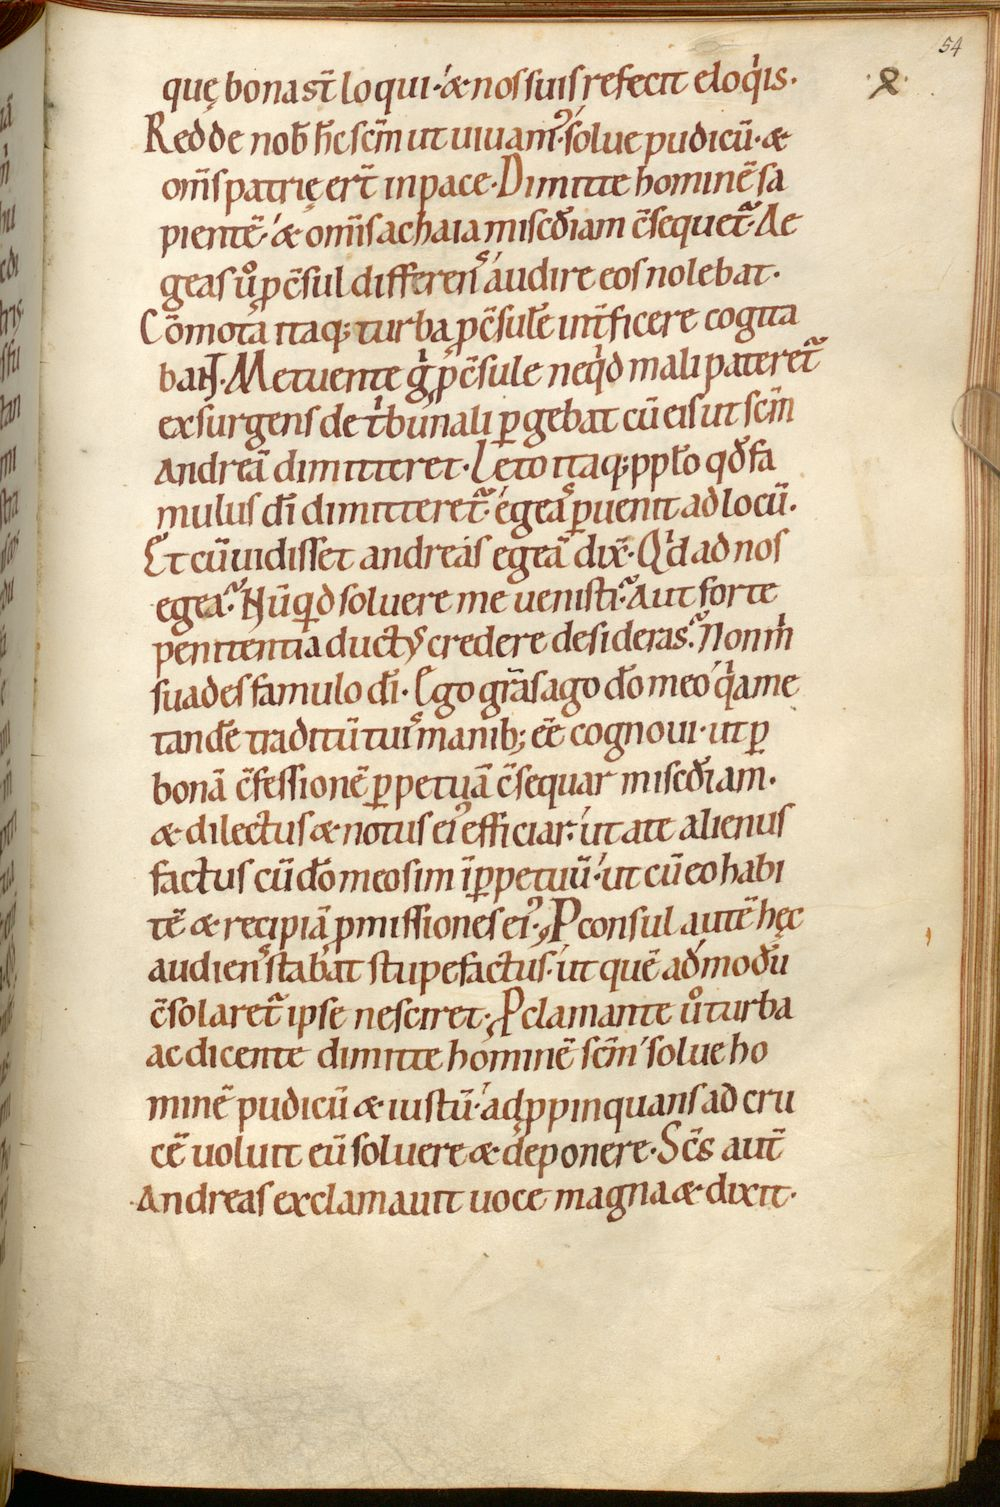 54
quę bona st̄ loqui · & nos suis refecit eloqⁱis ·
Redde nob̄ hc̄ sc̄m ut uiuam᾽ · solue pudicū · &
om̄s patrię er̄t in pace · Dimitte hominē sa
pientē · & om̄is achaia misc̄diam c̄sequet᷑ · Ae
geas ů ꝓc̄sul differens audire eos nolebat ·
Cōmota itaq; turba ꝓc̄sulē int̄ficere cogita
bant · Metuente gⁱ ꝓc̄sule neqⁱd mali pateret᷑
exsurgens de tⁱbunali ꝑgebat cū eis ut sc̄m
Andreā dimitteret · Leto itaq; ppl̄o qđ fa
mulus dī dimitteret᷑ · egeas ꝑuenit ad locū ·
Et cū uidisset andreas egeā dix̄ · Qⁱd ad nos
egea? Nūqⁱd soluere me uenisti? Aut forte
penitentia duct᾽ credere desideras? Non m̄
suades famulo dī · Ego gr̄as ago dn̄o meo qⁱa me
tandē traditū tuis manib; eē cognoui · ut ꝑ
bonā c̄fessionē ꝑpetuā c̄sequar misc̄diam ·
& dilectus & notus ei᾽ efficiar · ut a te alienus
factus cū dō meo sim ī ꝑpetuū · ut cū eo habi
tē & recipiā ꝓmissiones ei᾽ · Ꝓconsul autē hęc
audiens stabat stupefactus · ut quē admodū
c̄solaret᷑ ipse nesciret · Ꝓclamante ů turba
ac dicente dimitte hominē sc̄m solue ho
minē pudicū & iustū · adꝓpinquans ad cru
cē uoluit eū soluere & deponere · Sc̄s aut̄
Andreas exclamauit uoce magna & dixit ·